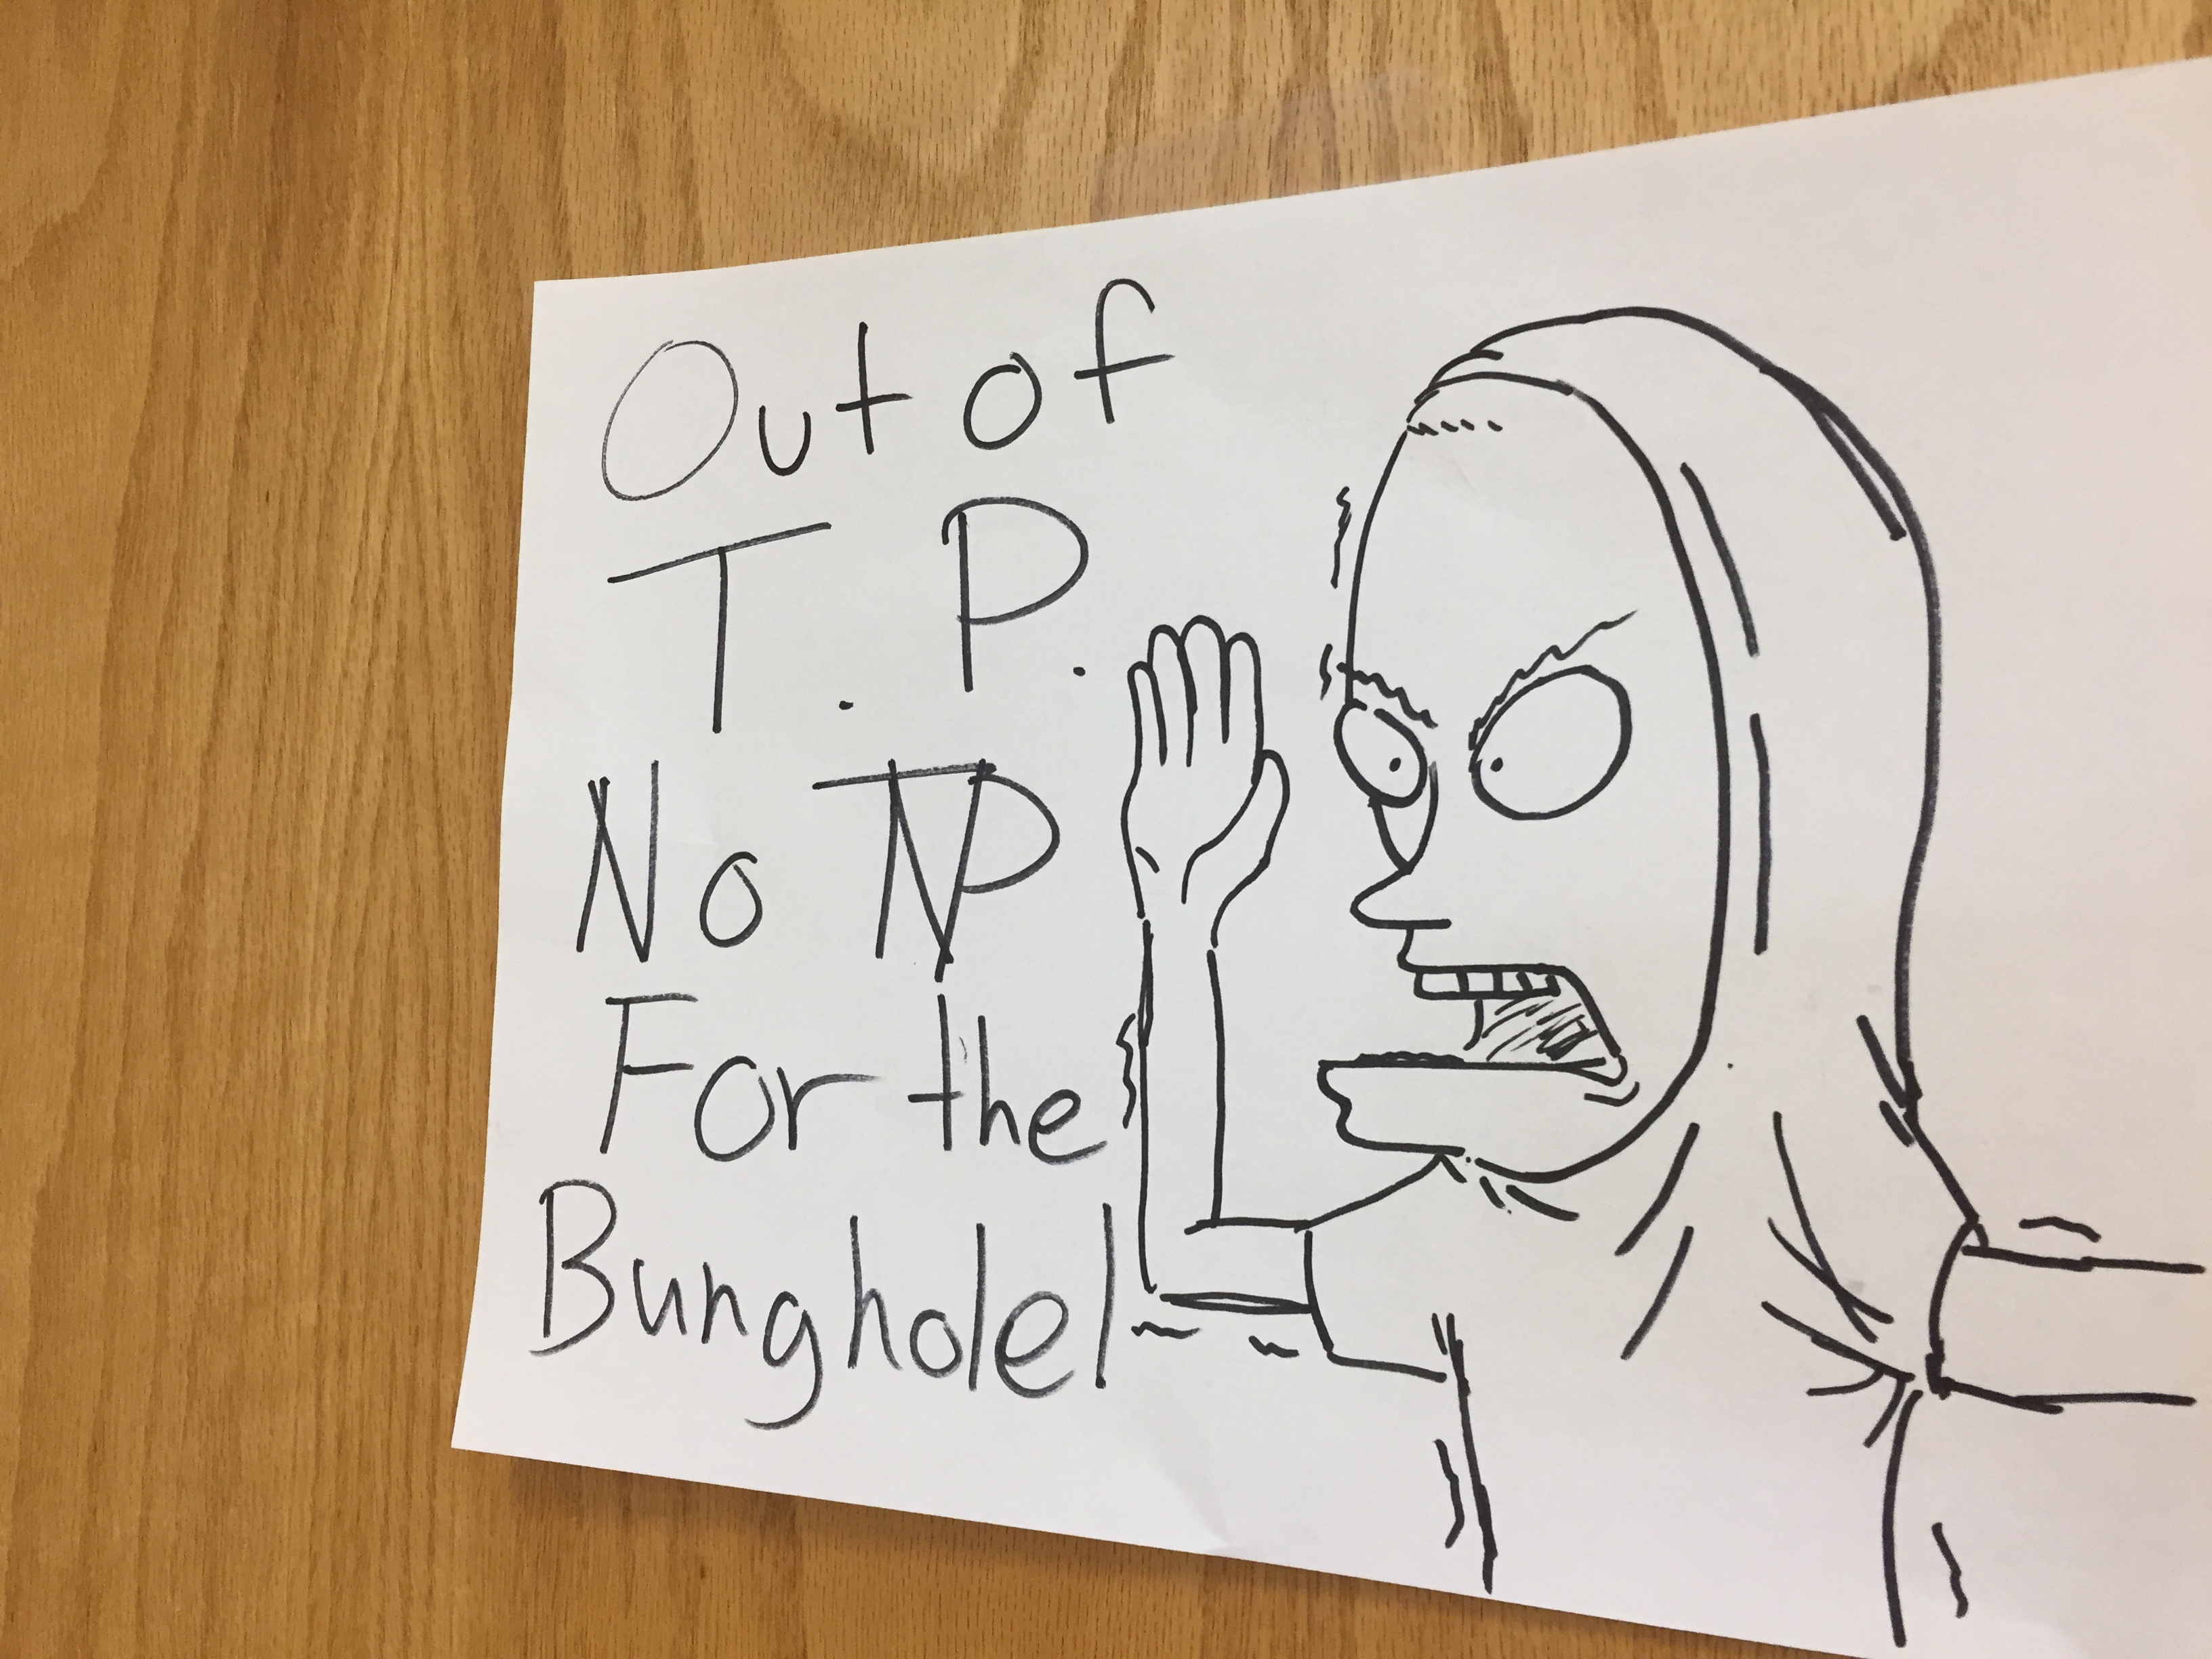 Out of
T. P.
No TP
For the
Bunghole!